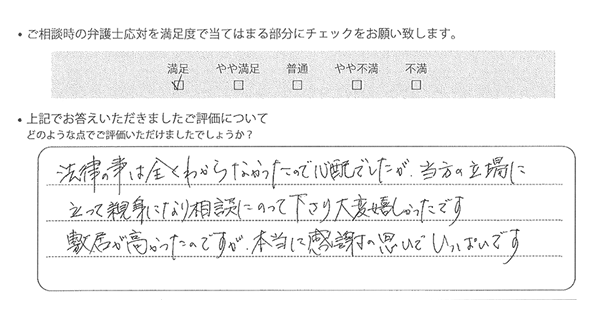 • ご相談時の弁護士応対を満足度で当てはまる部分にチェックをお願い致します。
満足 やや満足 普通 やや不満 不満
☑ □ □ □ □
• 上記でお答えいただきましたご評価について
どのような点でご評価いただけましたでしょうか？
法律の事は全くわからなかったので心配でしたが、当方の立場に
立って親身になり相談にのって下さり大変嬉しかったです
敷居が高かったのですが、本当に感謝の思いでいっぱいです